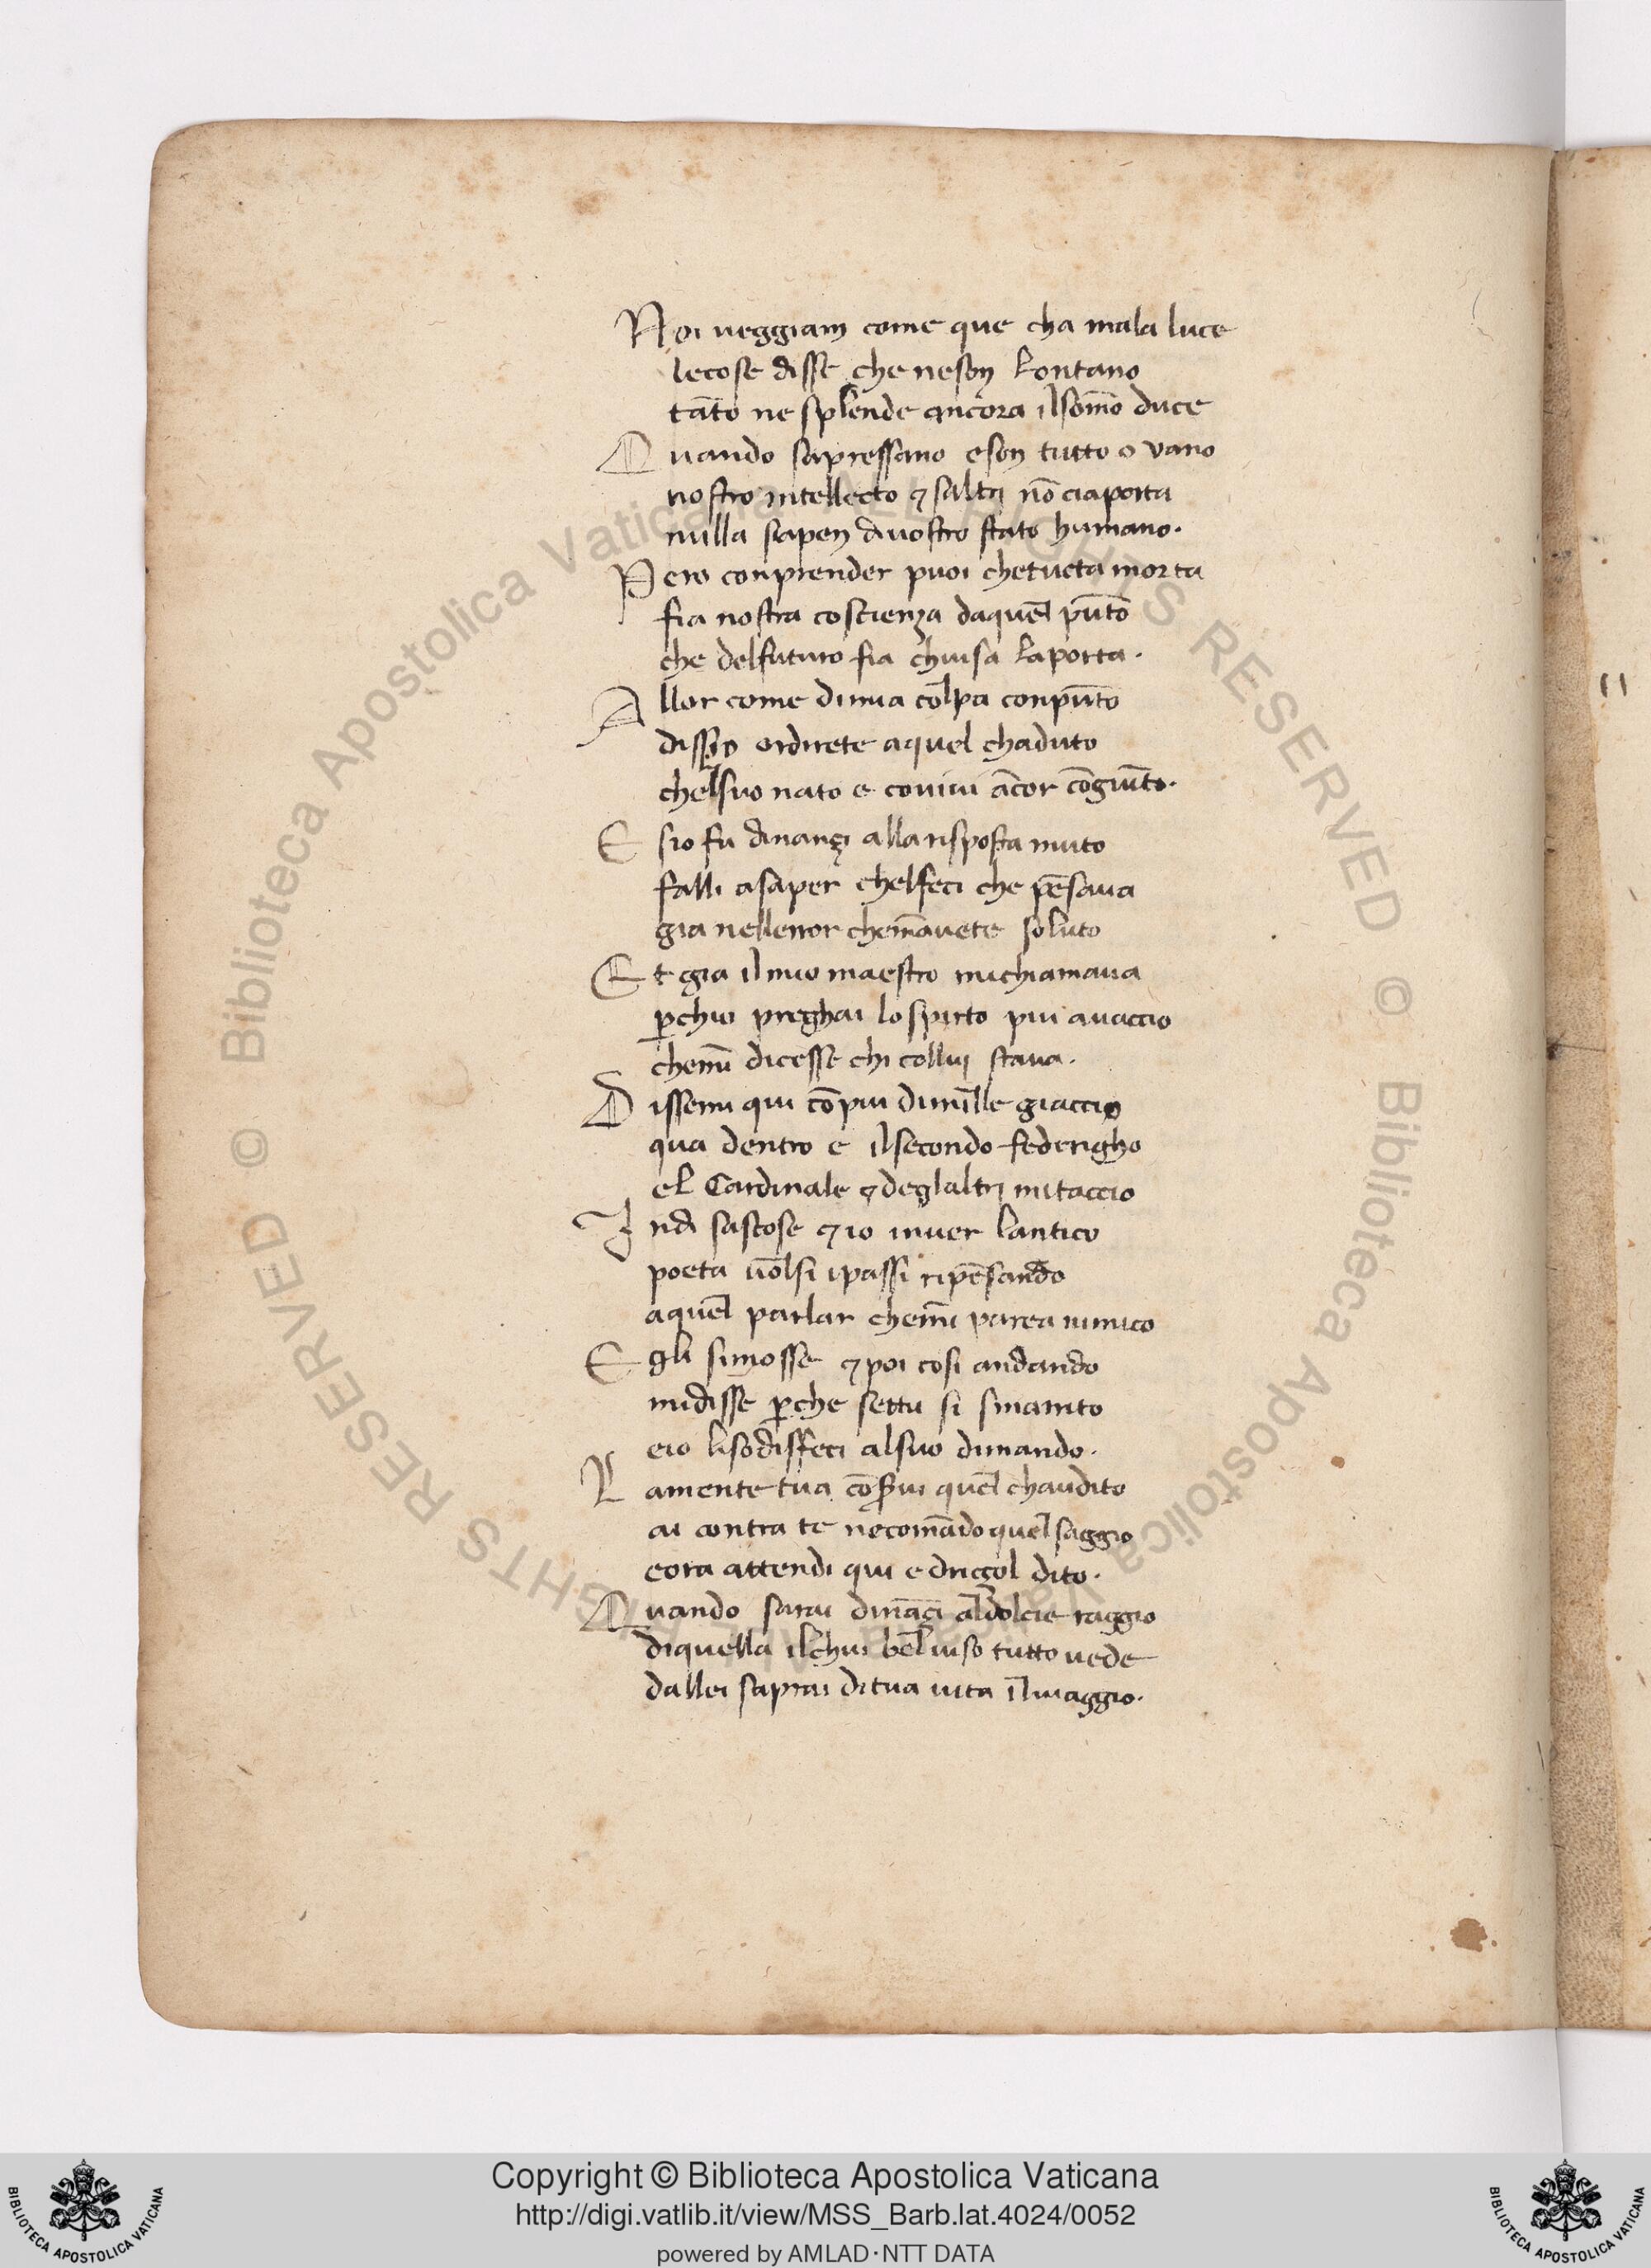 Noi ueggiam come que cha mala luce
lecose disse che neson lontano
tāto ne splende ancora ilsōmo duce
Quando sapressano eson tutto o vano
nostro intellecto ⁊ saltrj nō ciaporta
nulla sapen diuostro stato humano.
Pero conprender puoi chetucta morta
fia nostra coscienza daquel pūto
che delfuturo fia chiusa laporta.
Allor come dimia colpa conpūto
dissio ordirete aquel chaduto
chelsuo nato e couiui ācor cōgiūto.
E sio fu dinançi alla risposta muto
falli asaper chelfeci che pēsaua
gia nellerror chemāuete soluto
Et gia ilmio maestro michiamaua
ꝑchio preghai lospirto piu auaccio
chemi dicesse chi collui staua.
Dissemi qui cō piu dimille giaccio
qua dentro e ilsecondo federigho
el Cardinale ⁊ deglaltrj mitaccio
Indi sascose ⁊ io inuer lantico
poeta uolsi ipassi ripēsando
aquel parlar chemi parea nimico
Egli simosse ⁊ poi cosi andando
midisse ꝑche settu si smarrito
eio lisodisfeci alsuo dimando.
Lamente tua cōserui quel chaudito
ai contra te necomādo quel saggio
eora attendi qui e driçol dito.
Quando sarai dināçi aldolcie raggio
diquella ilchui bel uiso tutto uede
dallei saprai ditua uita iluiaggio.
11
© Biblioteca Apostolica Vaticana ALL RIGHTS RESERVED
© Biblioteca Apostolica Vaticana ALL RIGHTS RESERVED
Copyright © Biblioteca Apostolica Vaticana
http://digi.vatlib.it/view/MSS_Barb.lat.4024/0052
powered by AMLAD·NTT DATA
BIBLIOTECA APOSTOLICA VATICANA
BIBLIOTECA APOSTOLICA VATICANA